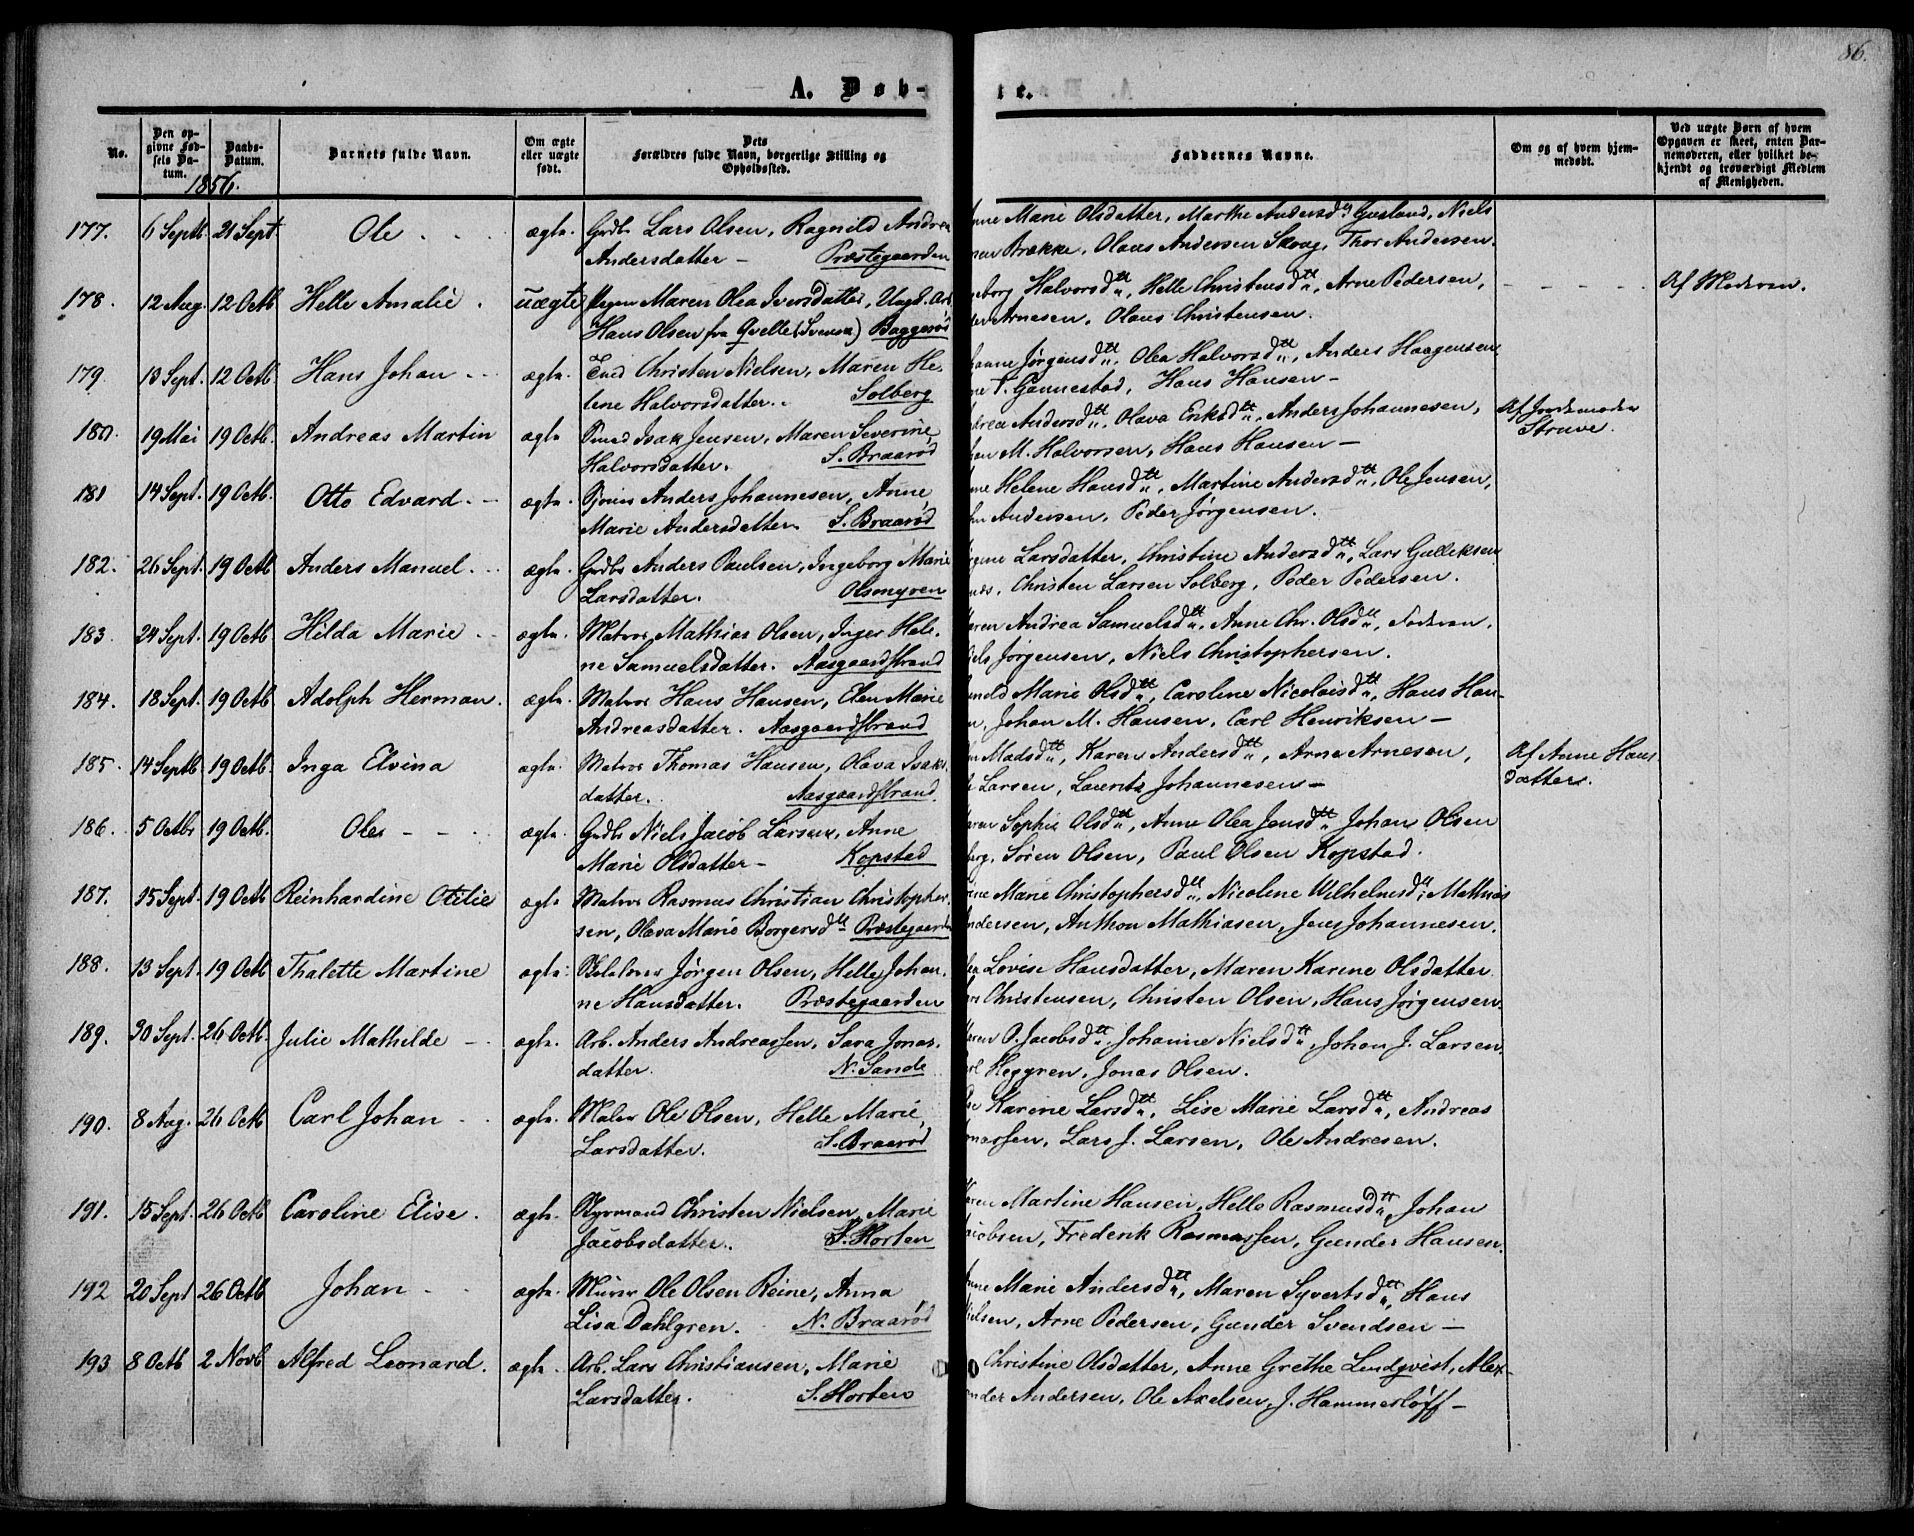 86.
A. Døb-
te.
No.
Den op-
givne Fød-
sels Da-
tum.
Daabs-
Datum.
Barnets fulde Navn.
Om ægte
eller uægte
født.
Dets
Forældres fulde Navn, borgerlige Stilling og
Opholdssted.
Faddernes Navne.
Om og af hvem hjem-
medøbt.
Ved uægte Børn af hvem
Opgaven er skeet, enten Bar-
nemoderen, eller hvilket be-
kjendt og troværdigt Medlem
af Menigheden.
1856.
177. 6 Septb. 21 Sept Ole ægte. Grdbr Lars Olsen, Ragnild Andrea
Andersdatter — Præstegaarden
Marie Olsdatter, Marthe Andersd Gusland, Niels
Brække, Olaus Andersen Skoug, Thor Andersen.
178. 12 Aug. 12 Octb Helle Amalie. uægte Pigen Maren Olea Iversdatter, Ungd. Arb.
Hans Olsen fra Qvelle (Svensk) Baggerød
Halvorsdtt, Helle Christensdtt, Arne Pedersen,
Arnesen, Olaus Christensen.
Af Moderen.
179. 13 Sept. 12 Octb Hans Johan ægte. Christen Nielsen, Maren He-
lene Halvorsdatter. Solberg
Jørgensdtt, Olea Halvorsdtt, Anders Haagensen
T. Gannestad, Hans Hansen —
180. 19 Mai 19 Octb. Andreas Martin ægte Isak Jensen, Maren Severine
Halvorsdatter. S. Braarød
Andersdtt, Olava Eriksdtt, Anders Johannesen,
M. Halvorsen, Hans Hansen —
Af Jordemoder
Struve.
181 14 Sept. 19 Octb. Otto Edvard. ægte. Anders Johannesen, Anne
Marie Andersdatter. S. Braarød
Helene Hansdtt, Martine Andersdtt, Ole Jensen,
Andersen, Peder Jørgensen.
182. 26 Sept. 19 Octb Anders Manuel. ægte. Grdbr Anders Paulsen, Ingeborg Marie
Larsdatter. Olsmyren
Larsdatter, Christine Andersdtt, Lars Gulleksen
Christen Larsen Solberg, Peder Pedersen.
183. 24 Sept. 19 Octb Hilda Marie ægte. Matros Mathias Olsen, Inger Hele-
ne Samuelsdatter. Aasgaardstrand
Andrea Samuelsdtt, Anne Chr. Olsdtt, Faderen,
Jørgensen, Niels Christophersen.
184. 18 Sept. 19 Octb Adolph Herman. ægte. Matros Hans Hansen, Elen Marie
Andreasdatter. Aasgaardstrand
Marie Olsdtt, Caroline Nicolaisdtt, Hans Han-
Johan M. Hansen, Carl Henriksen —
185. 14 Septb 19 Octb. Inga Elvina ægte. Matros Thomas Hansen, Olava Isaks
datter. Aasgaardstrand.
Madsdtt, Karen Andersdtt, Arne Arnesen,
Larsen, Laurits Johannesen —
Af Anne Hans
datter.
186. 5 Octbr 19 Octb. Oles ægte. Grdbr Niels Jacob Larsen, Anne
Marie Olsdatter — Kopstad
Sophie Olsdtt, Anne Olea Jensdtt Johan Olsen
Søren Olsen, Paul Olsen Kopstad.
187. 15 Sept. 19 Octb Reinhardine Otilie ægte Matros Rasmus Christian Christopher-
sen, Olava Marie Borgersdtt Præstegaarden
Marie Christophersdtt, Nicoline Wilhelmsdtt Mathias
Andersen, Anthon Mathiasen, Jens Johannesen.
188. 13 Sept. 19 Octb Thalette Martine ægte: Jørgen Olsen, Helle Johan-
ne Hansdatter. Præstegaarden
Lovise Hansdatter, Maren Karine Olsdatter
Christensen, Christen Olsen, Hans Jørgensen.
189. 30 Sept. 26 Octb. Julie Mathilde ægte. Arb. Anders Andreassen, Sara Jonas
datter. N. Sande
Maren O. Jacobsdtt, Johanne Nielsdtt, Johan J. Larsen,
Heggren, Jonas Olsen.
190. 8 Aug. 26 Octb Carl Johan ægte. Maler Ole Olsen, Helle Marie
Larsdatter. S. Braarød
Karine Larsdtt, Lise Marie Larsdtt, Andreas
Jonassen, Lars J. Larsen, Ole Andresen.
191. 15 Sept. 26 Octb Caroline Elise. ægte. Styrmand Christen Nielsen, Marie
Jacobsdatter. S. Horten
Martine Hansen, Helle Rasmusdtt, Johan
Jacobsen, Frederik Rasmussen, Gunder Hansen.
192 20 Sept 26 Octb Johan ægte. Murer Ole Olsen Reine, Anna
Lisa Dahlgren. N. Braarød
Marie Andersdtt, Maren Syvertsdtt, Hans
Nielsen, Arne Pedersen, Gunder Svendsen —
193 8 Octb 2 Novb Alfred Leonard. ægte. Arb. Lars Christiansen, Marie
Larsdatter. S. Horten
Christine Olsdatter, Anne Grethe Lindqvist, Alex-
ander Andersen, Ole Axelsen, J. Hammerløff —